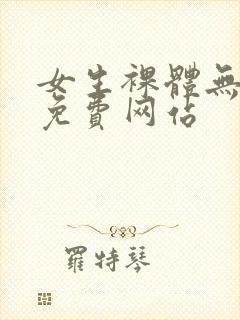 女生裸體無
免費网佔
羅特琴